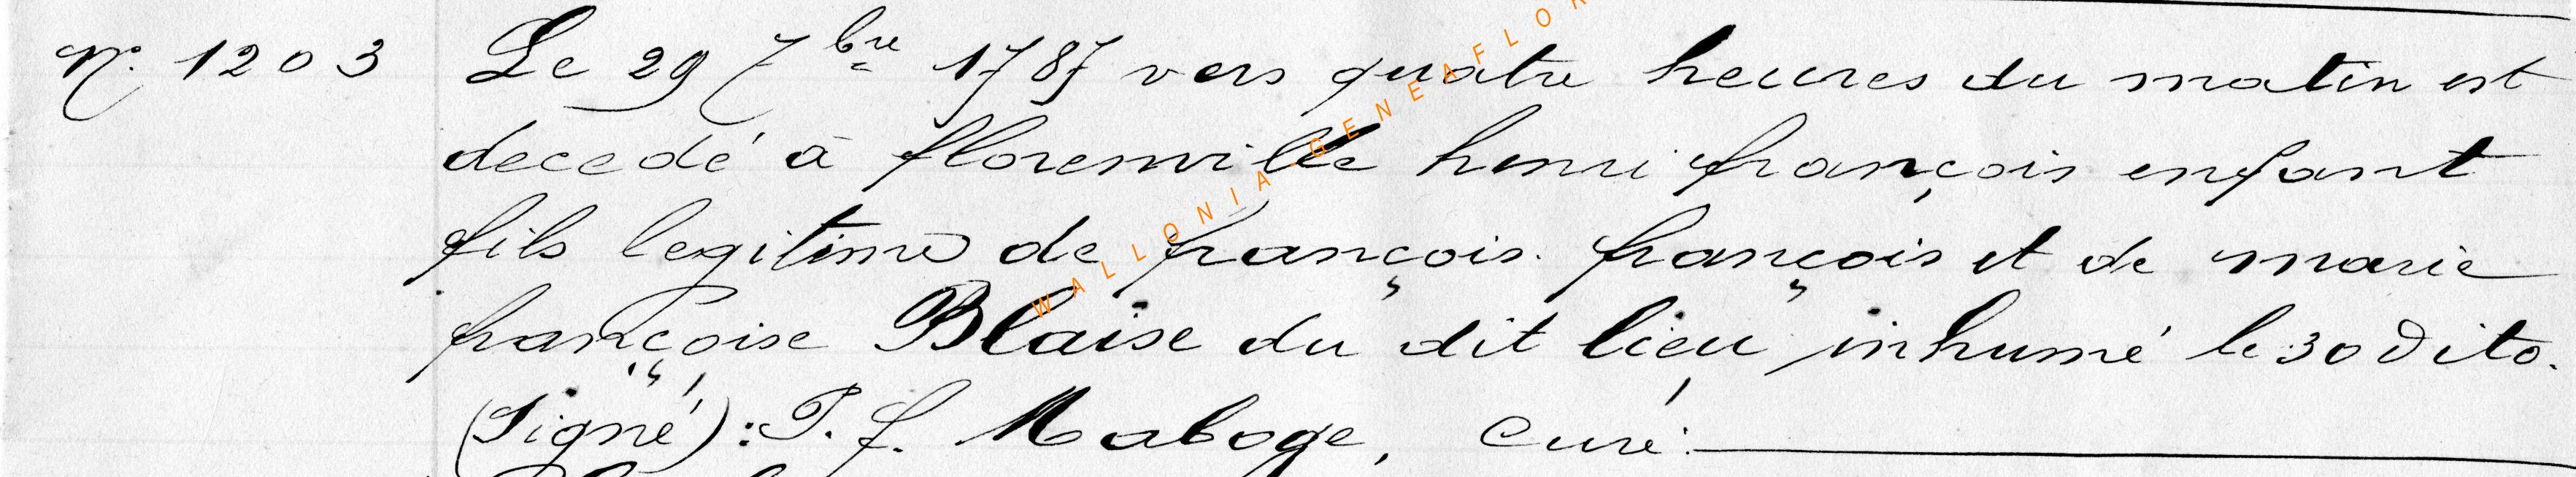 N.° 1203 Le 29 7bre 1787 vers quatre heures du matin est
decedé à florenville henri françois enfant
fils legitime de françois. françois et de marie
françoise Blaise du dit lieu inhumé le 30 dito.
(Signé): P. f. Maboge, curé.
WALLONIA GENEAFLOR